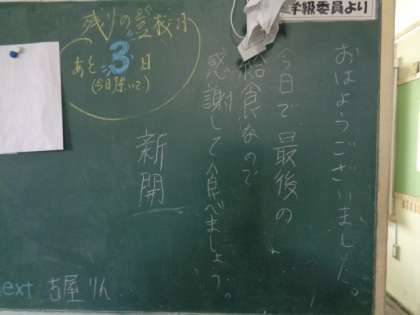 学級委員より
おはようございました。
今日で最後の
給食なので
感謝して食べましょう。
新開
残りの登校日
あと3日
(今日除いて)
next 古屋りん